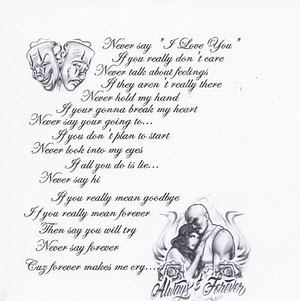 Never say "I Love You"
If you really don't care
Never talk about feelings
If they aren't really there
Never hold my hand
If your gonna break my heart
Never say your going to...
If you don't plan to start
Never look into my eyes
If all you do is lie...
Never say hi
If you really mean goodbye
If you really mean forever
Then say you will try
Never say forever
Cuz forever makes me cry....
Always & Forever